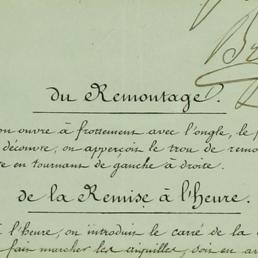 Br
du Remontage.
on ouvre à frottement avec l'ongle, le
découvre; on apperçoit le trou de remo
en tournant de gauche à droite.
de la Remise à l'heure.
l'heure, on introduis le carré de la
fait marcher les aiguilles, soit en ar